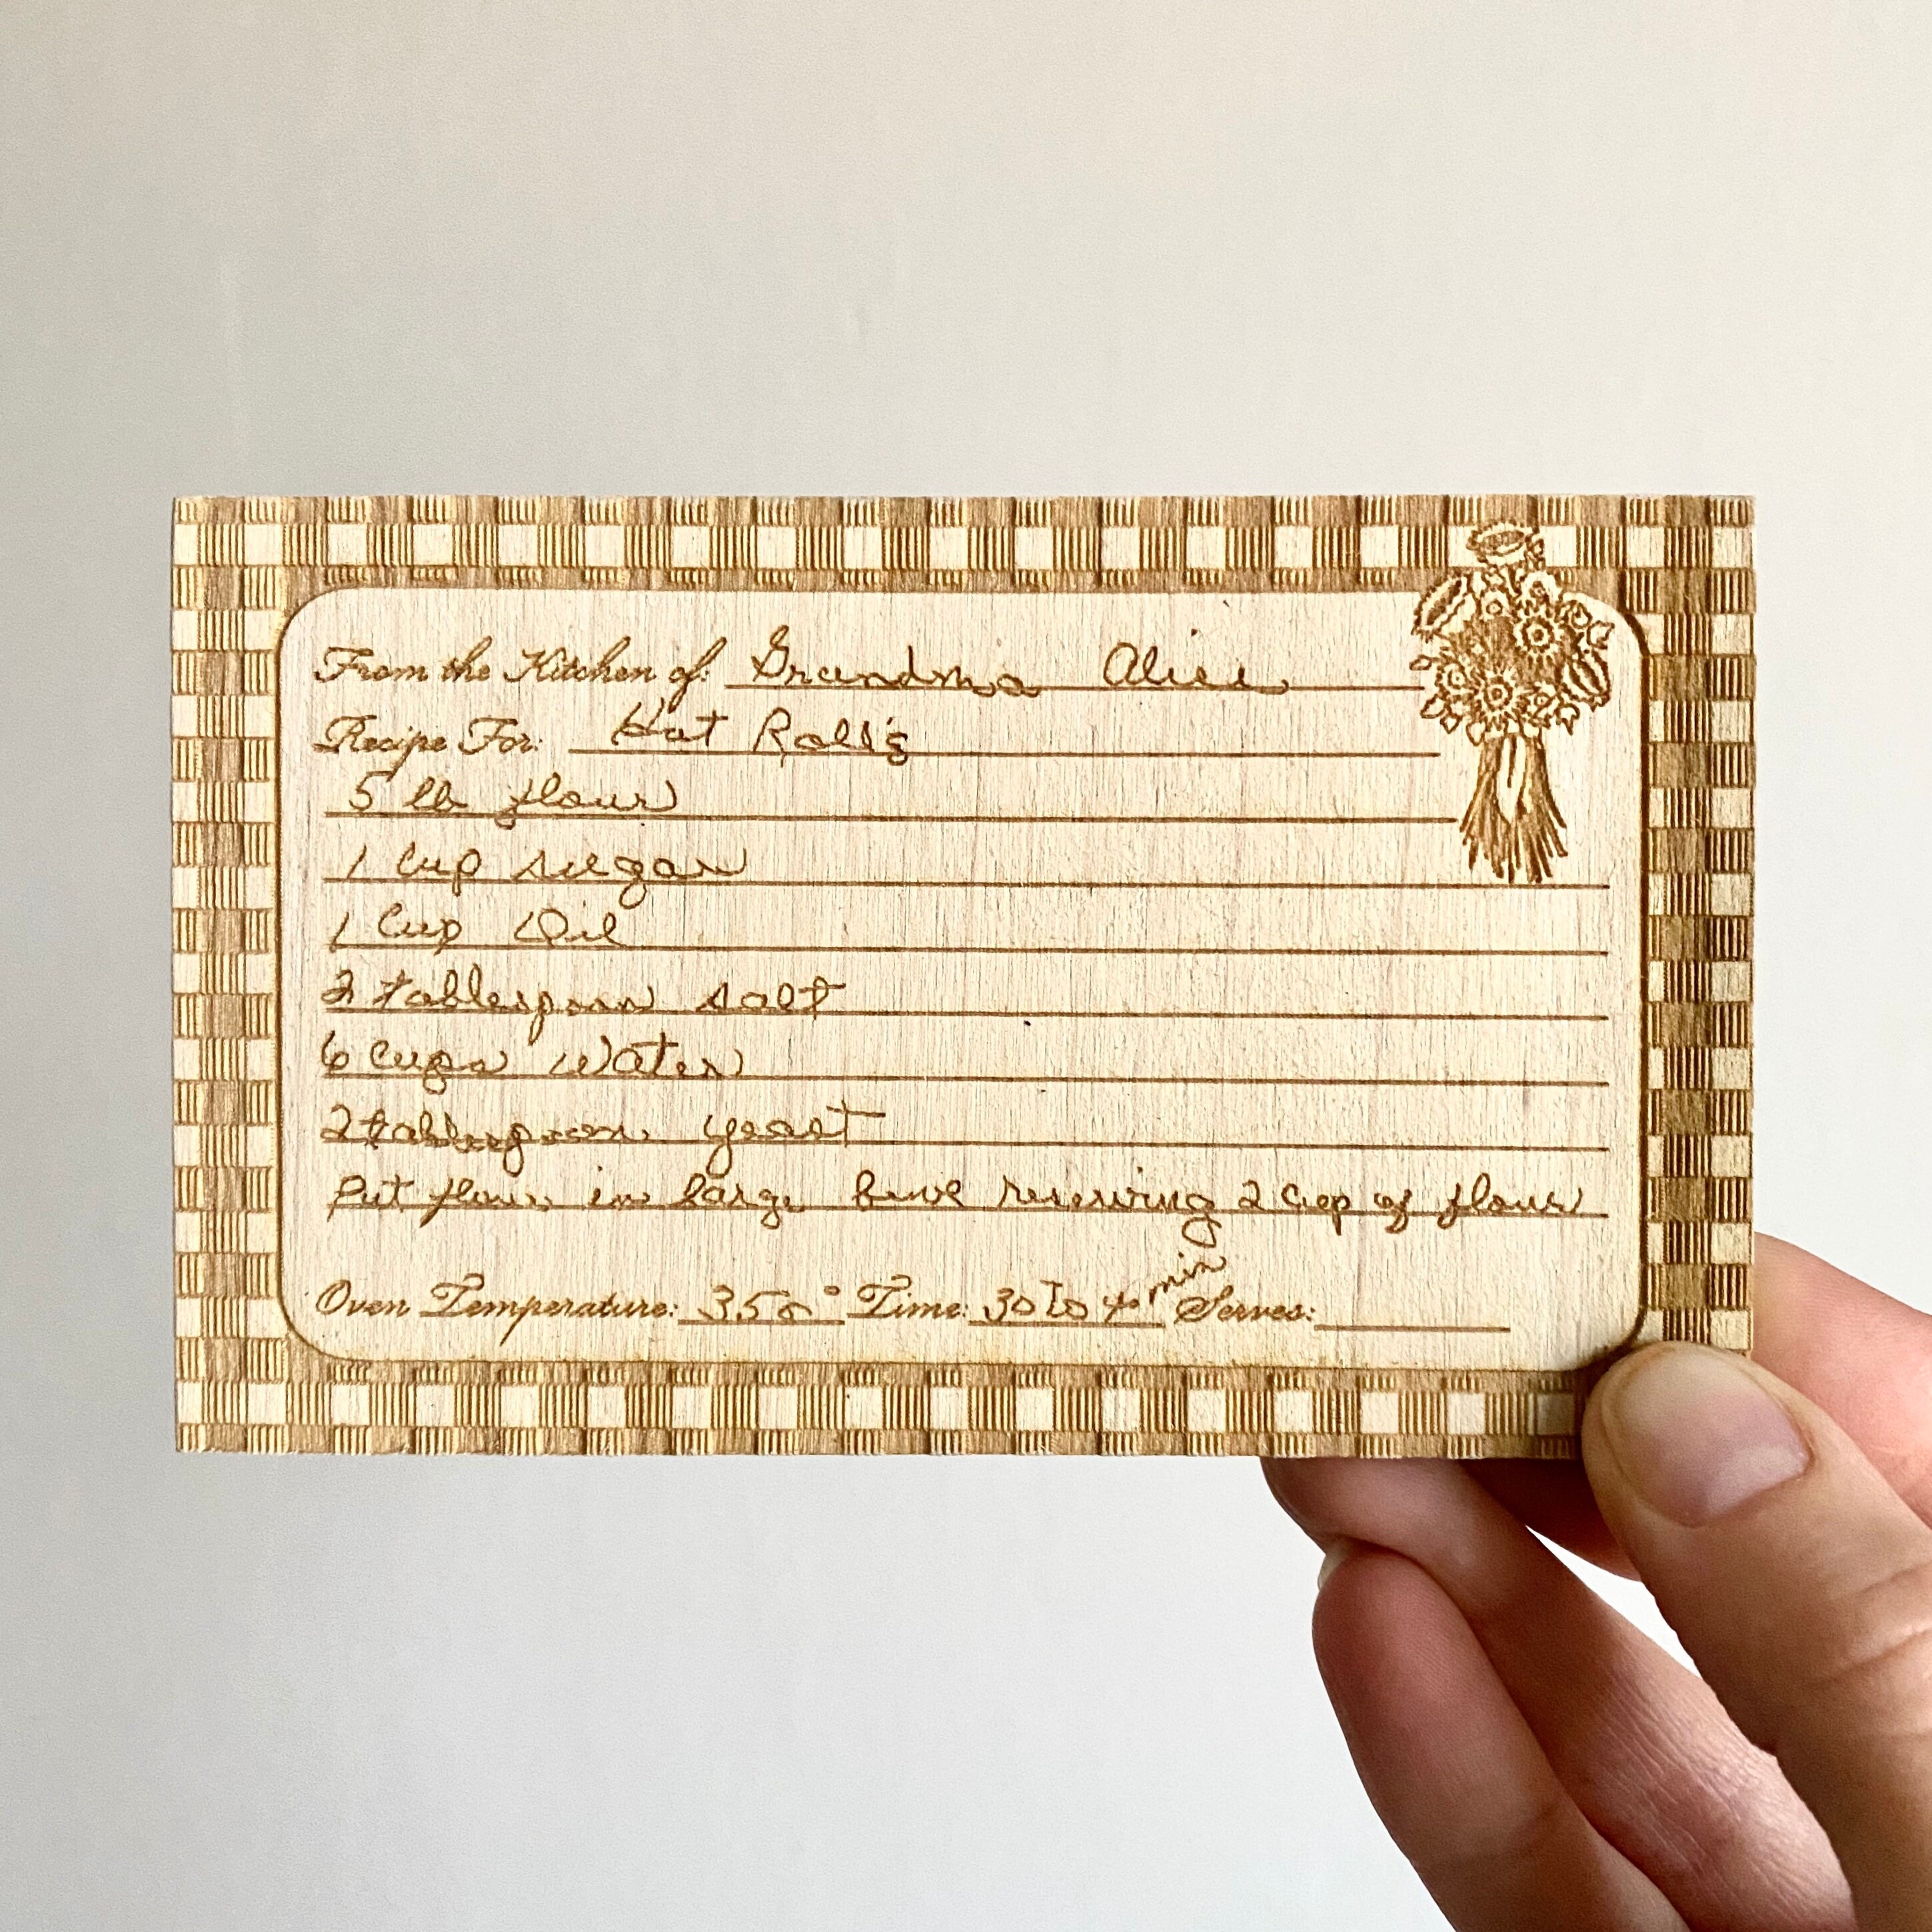 From the Kitchen of: Grandma Alice
Recipe For: Hot Rolls
5 lb flour
1 cup sugar
1 Cup Oil
2 tablespoon salt
6 cups water
2 tablespoon yeast
Put flour in large bowl reserving 2 cup of flour
Oven Temperature: 350° Time: 30 to 40 min Serves: